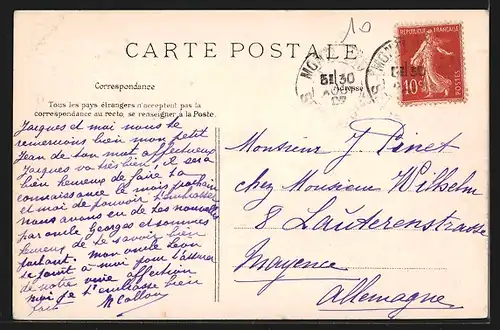 10
CARTE POSTALE
RÉPUBLIQUE FRANÇAISE
POSTES
10c
5E 30
Correspondance
Adresse
Tous les pays étrangers n'acceptent pas la
correspondance au recto, se renseigner à la Poste.
Jacques et moi nous te
remercions bien mon petit
Jean de ton mot affectueux
Jacques va très bien, il sera
bien heureux de faire ta
connaissance le mois prochain
et moi de pouvoir t'embrasser
nous avons eu de tes nouvelles
par oncle Georges et sommes
heureux de te savoir bien
portant. Mon oncle Léon
se joint à moi pour t'assurer
de notre vive affection
moi je t'embrasse bien
fort
Monsieur J Pinet
chez Monsieur Wilhelm
8 Lauterenstrasse
Mayence
Allemagne